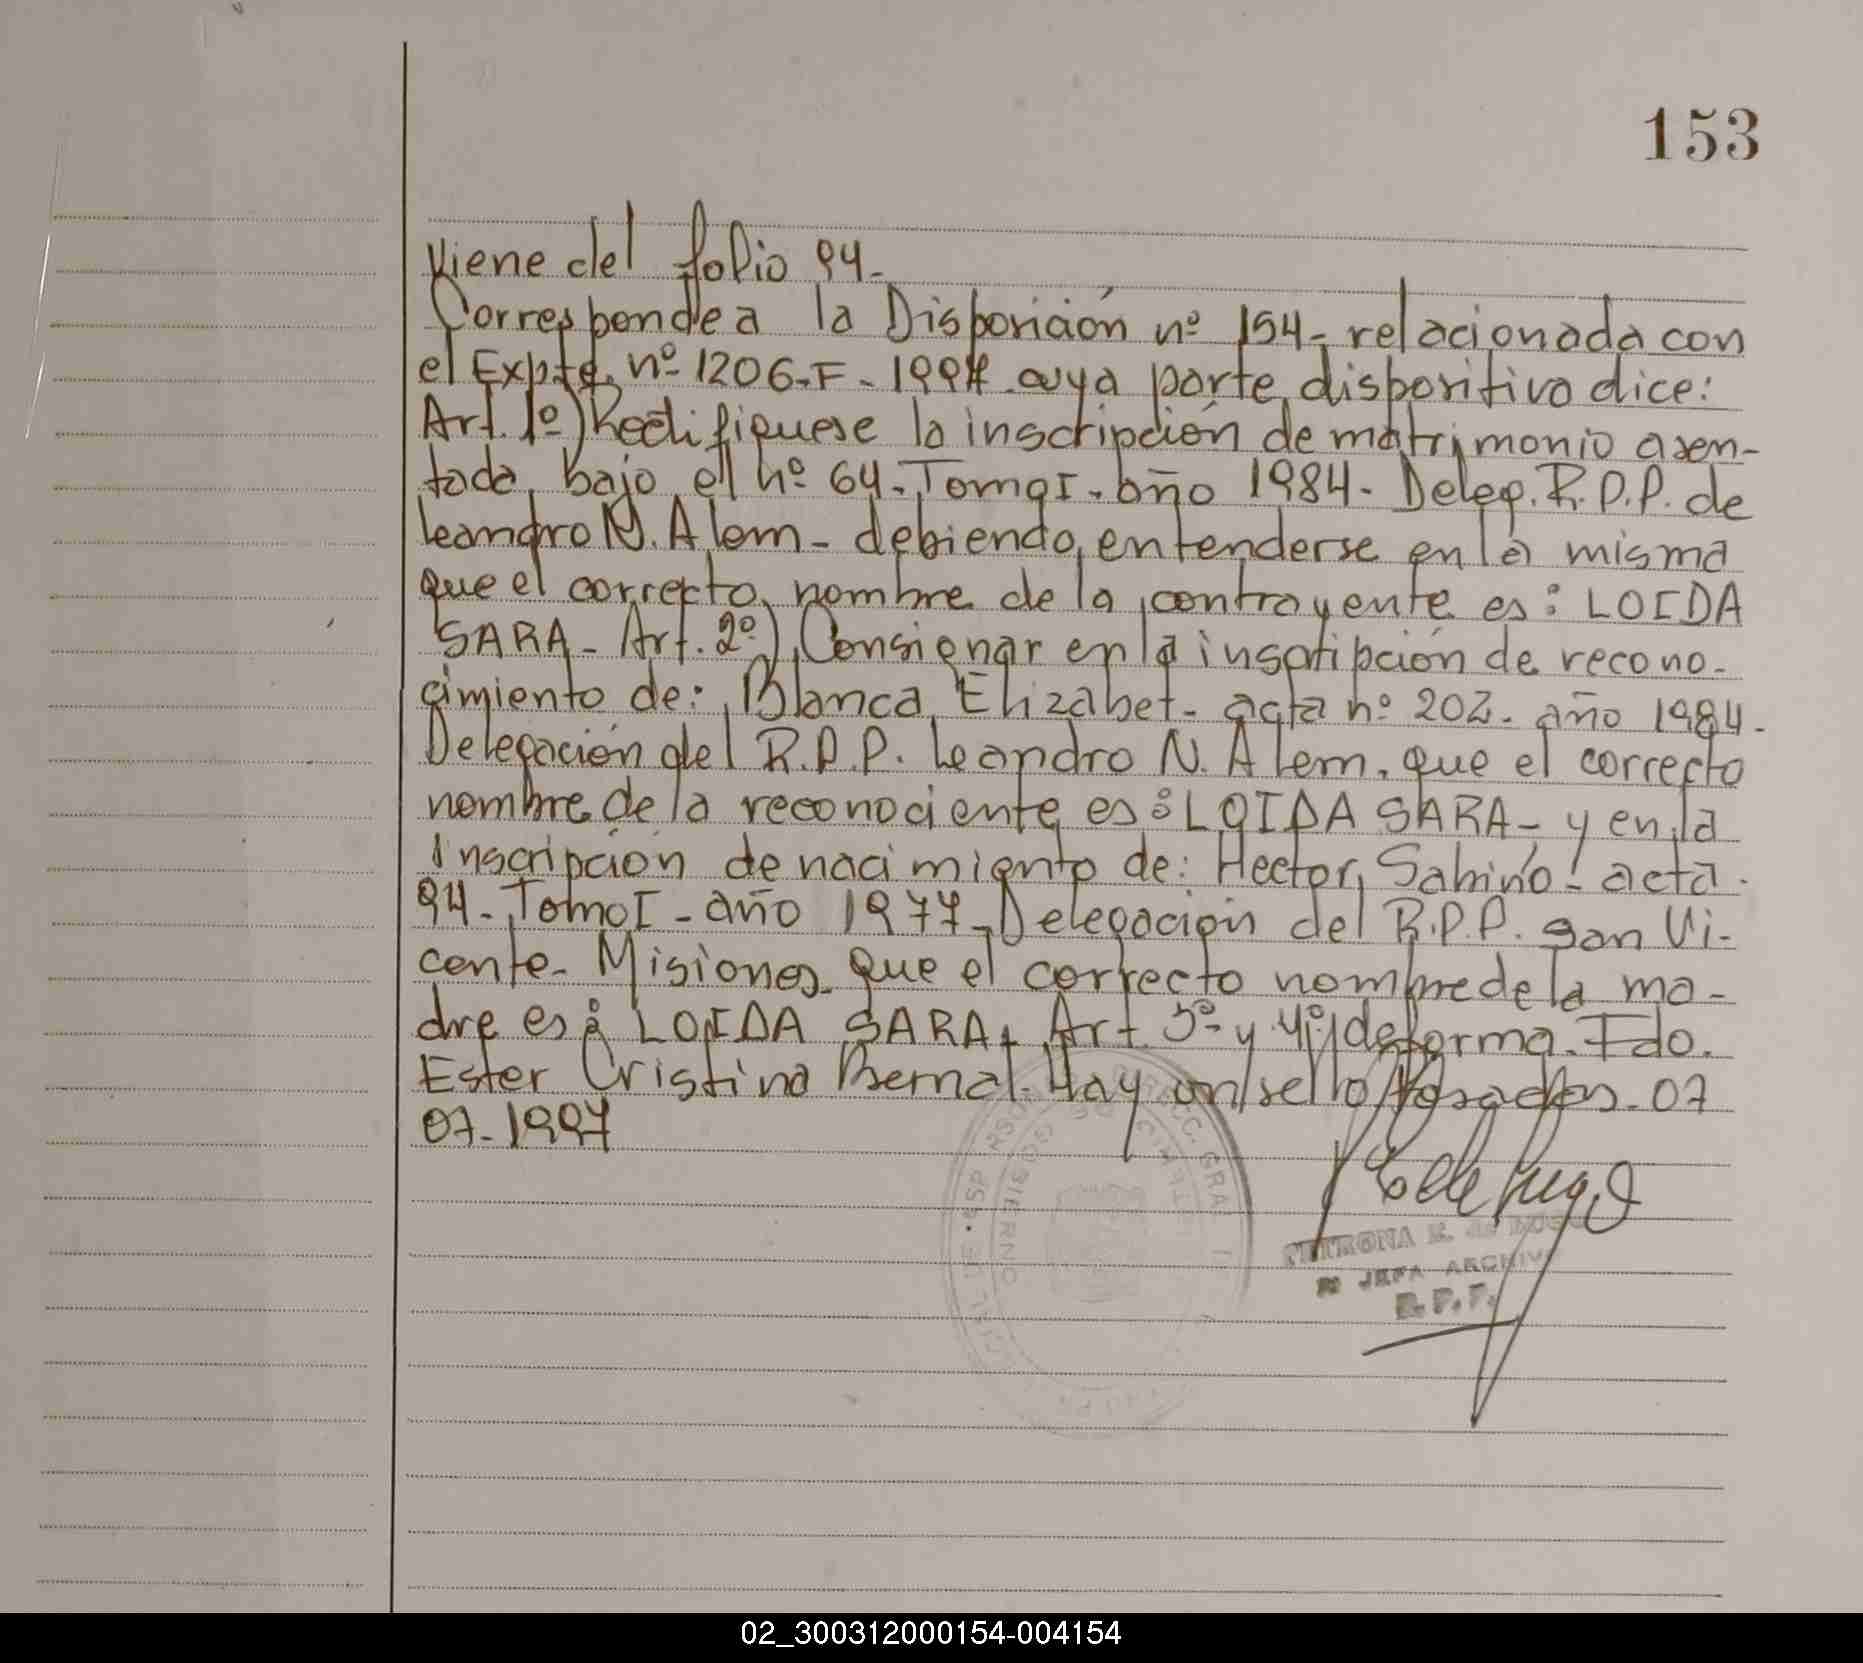 153
Viene del folio 94-
Corresponde a la Disposición nº 154- relacionada con
el Expte nº 1206-F-1997 cuya parte dispositiva dice:
Art. 1º) Rectifiquese la inscripción de matrimonio asen-
tada bajo el nº 64-Tomo I-año 1984- Deleg. R.P.P. de
Leandro N. Alem- debiendo entenderse en la misma
que el correcto nombre de la contrayente es: LOIDA
SARA- Art. 2º) Consignar en la inscripción de recono-
cimiento de: Blanca Elizabet- acta nº 202- año 1984-
Delegación del R.P.P. Leandro N. Alem. que el correcto
nombre de la reconociente es: LOIDA SARA- y en la
inscripción de nacimiento de: Hector Sabino- acta-
94-Tomo I-año 1977-Delegación del R.P.P. San Vi-
cente- Misiones- que el correcto nombre de la ma-
dre es: LOIDA SARA- Art. 3º y 4º) de forma. Fdo.
Ester Cristina Bernal. Hay un sello Posadas- 07
07-1997
PETRONA K. de LUGO
JEFA ARCHIVO
R.P.P.
02_300312000154-004154